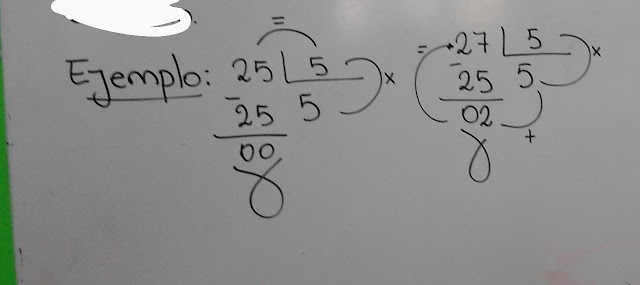 =
Ejemplo: 25 5 x = 27 5 x
- 25 5 - 25 5
00 02 +